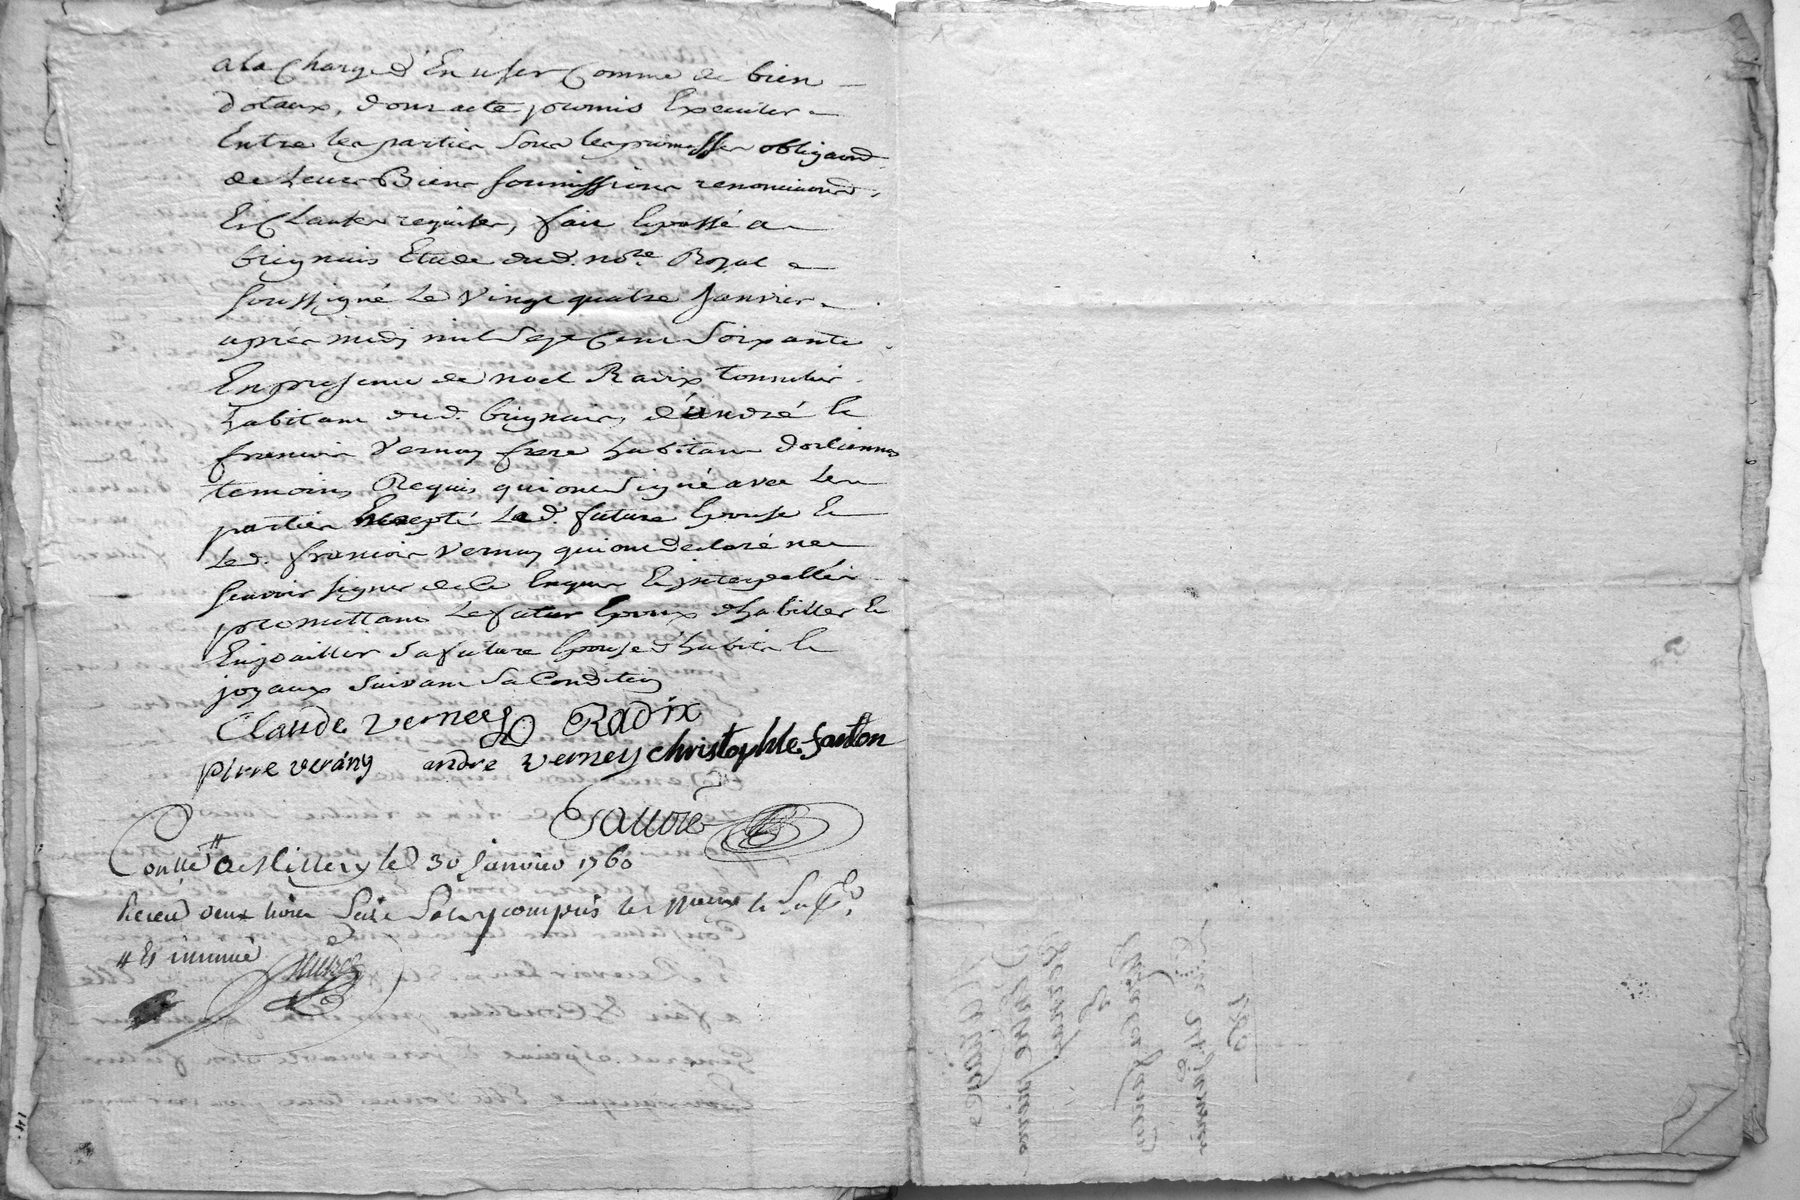 a la Charge d'En user Comme de bien
dotaux, dont acte promis Executer
Entre les parties sous les promesses obligaond
de leurs Biens soumissions renonciaond
Et Clauses requises, fait Epassé a
brignais Etude dud. no.re Royal
soussigné Le vingt quatre Janvier
après midy mil sept Cent soixante
En presence de noel Radix tonnelier
habitant dud. brignais, d'andré Et
francois vernay frere habitans d'orliennas
temoins Requis qui ont signé avec Les
parties Excepté Lad. future Epouse Et
Led. francois vernay qui ont declaré ne
scavoir signer de ce Enquis Et interpellés
promettant Le futur Epoux d'habiller Et
Enjoailler sa future Epouse d'habits Et
joyaux suivant sa Condition
Claude verney Radix
pierre verány andre verney christophle fanton
Contllé a Millery le 30 Janvier 1760
Receu deux livres seize sols y compris les
# Et insinué